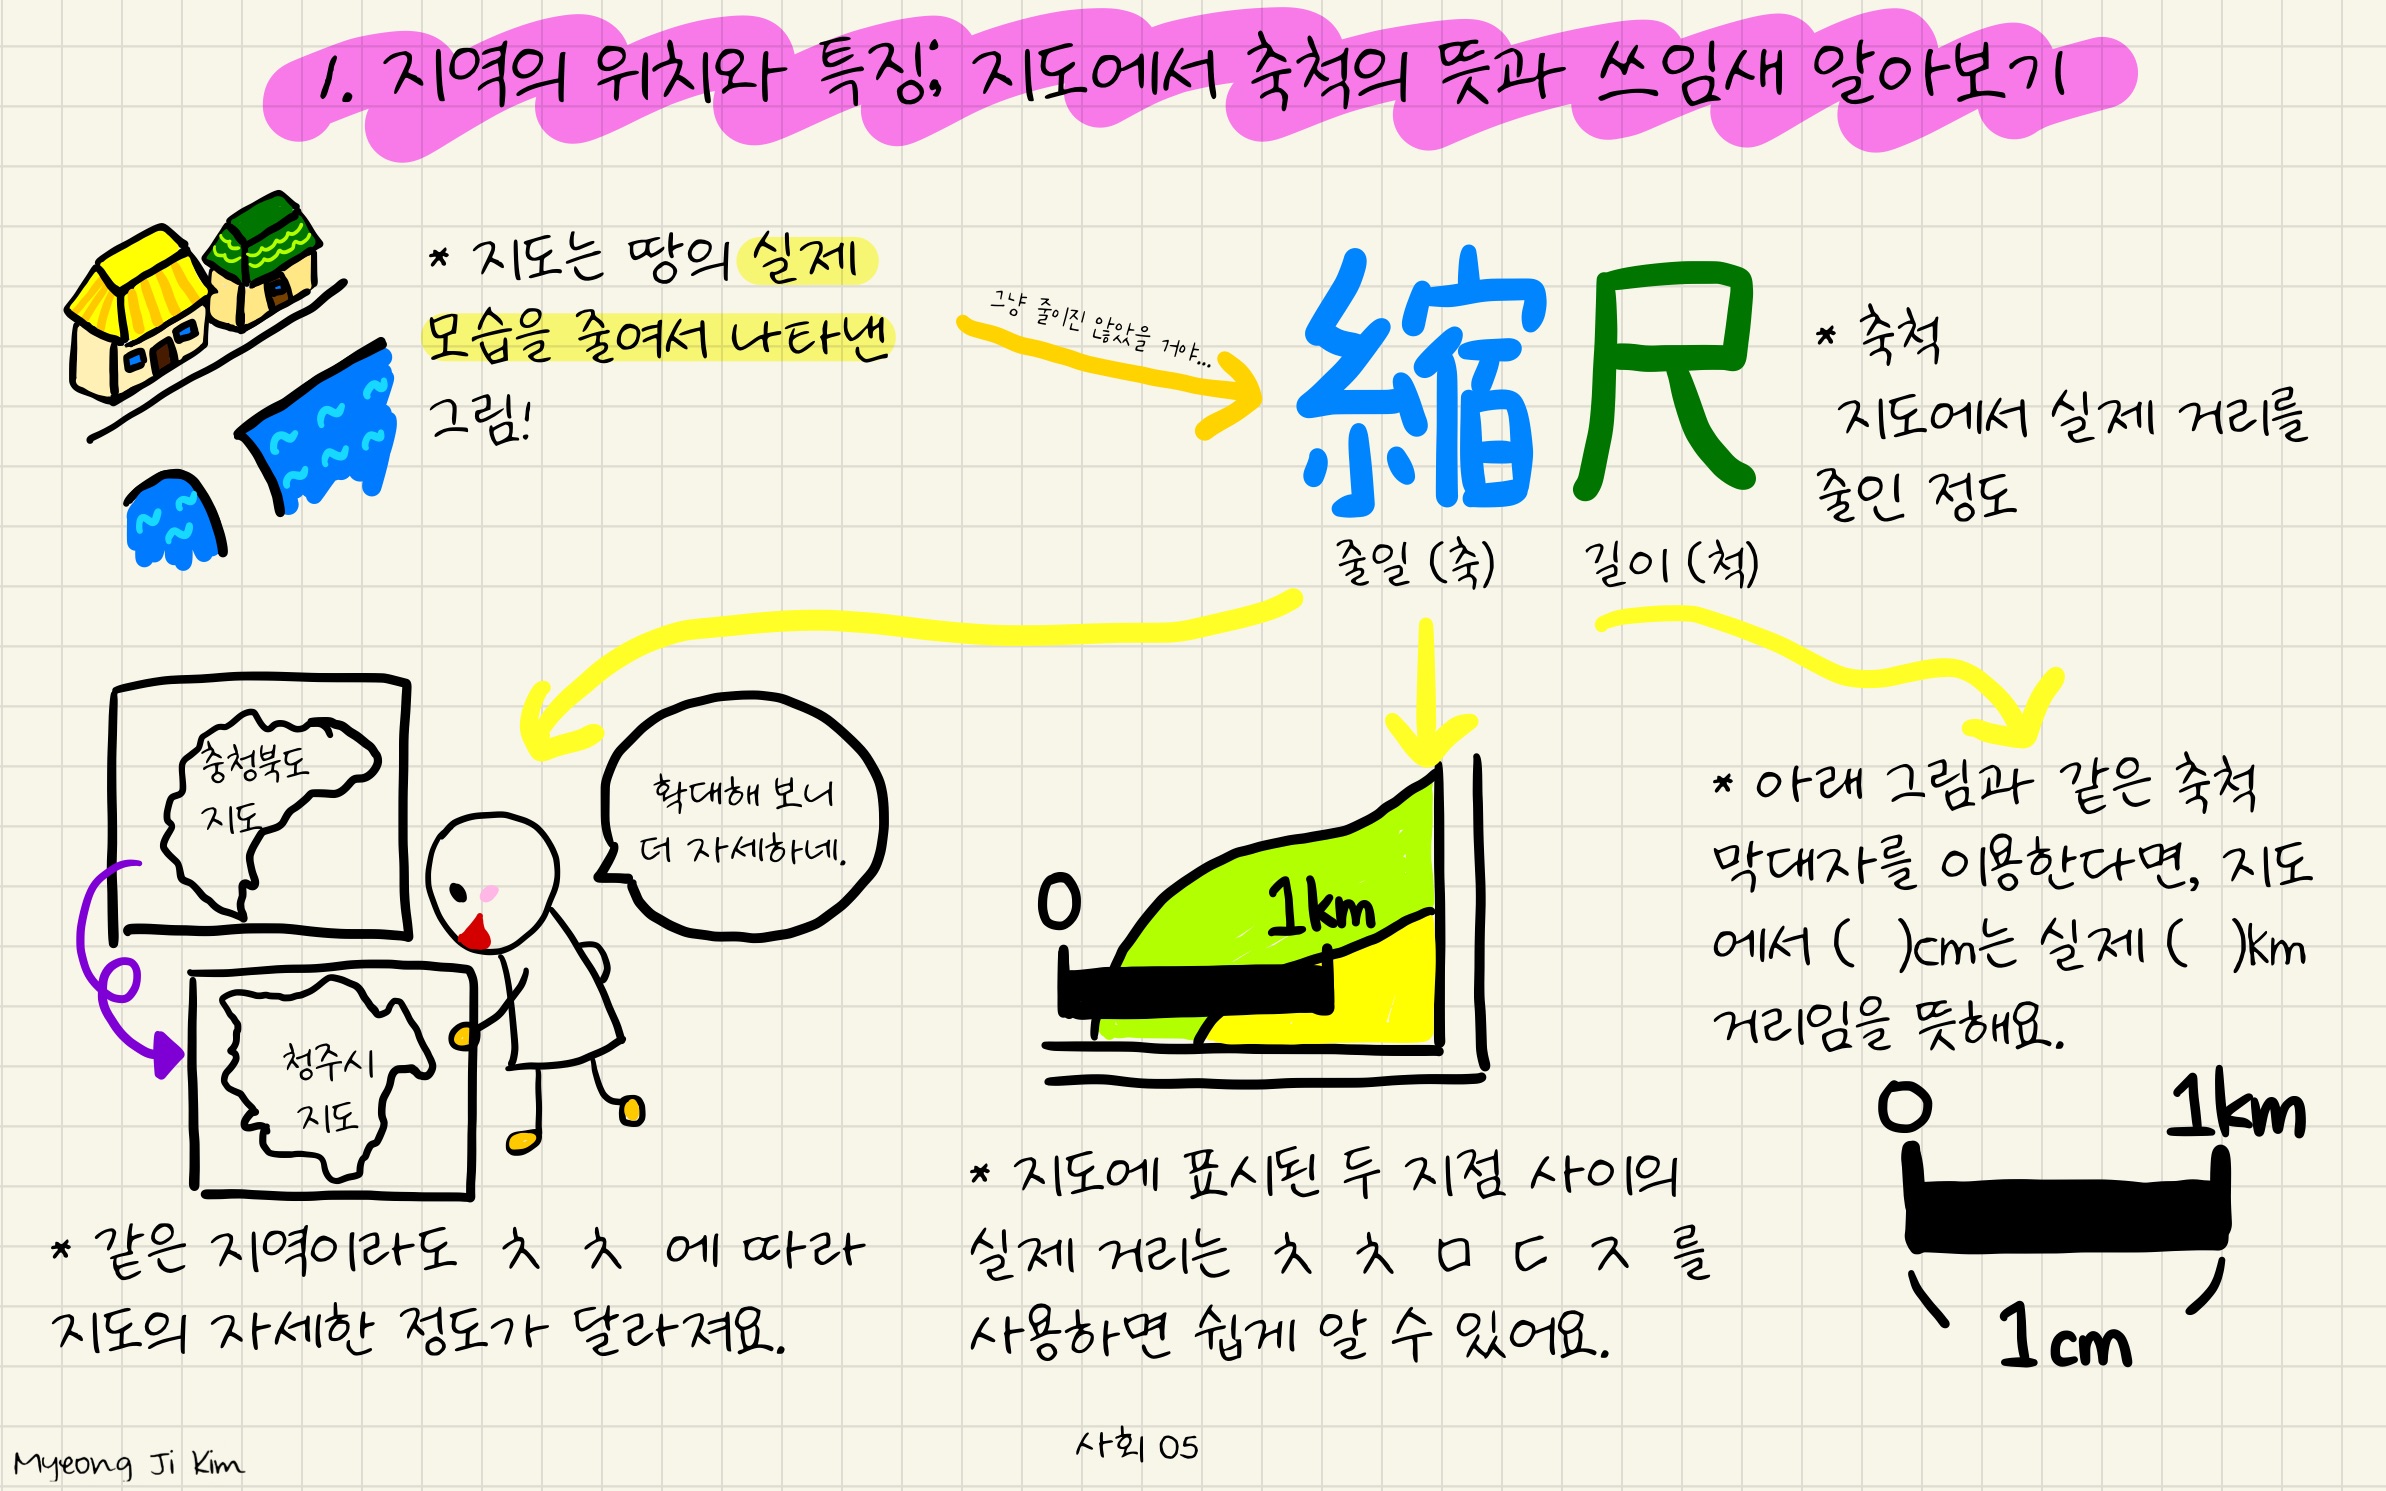 1. 지역의 위치와 특징; 지도에서 축척의 뜻과 쓰임새 알아보기
* 지도는 땅의 실제
모습을 줄여서 나타낸
그림!
그냥 줄이진 않았을 거야...
縮尺
줄일 (축) 길이 (척)
* 축척
지도에서 실제 거리를
줄인 정도
충청북도
지도
청주시
지도
확대해 보니
더 자세하네.
* 같은 지역이라도 ㅊ ㅊ 에 따라
지도의 자세한 정도가 달라져요.
0 1km
* 지도에 표시된 두 지점 사이의
실제 거리는 ㅊ ㅊ ㅁ ㄷ ㅈ 를
사용하면 쉽게 알 수 있어요.
* 아래 그림과 같은 축척
막대자를 이용한다면, 지도
에서 ( )cm는 실제 ( )km
거리임을 뜻해요.
0 1km
1cm
사회 05
Myeong Ji Kim